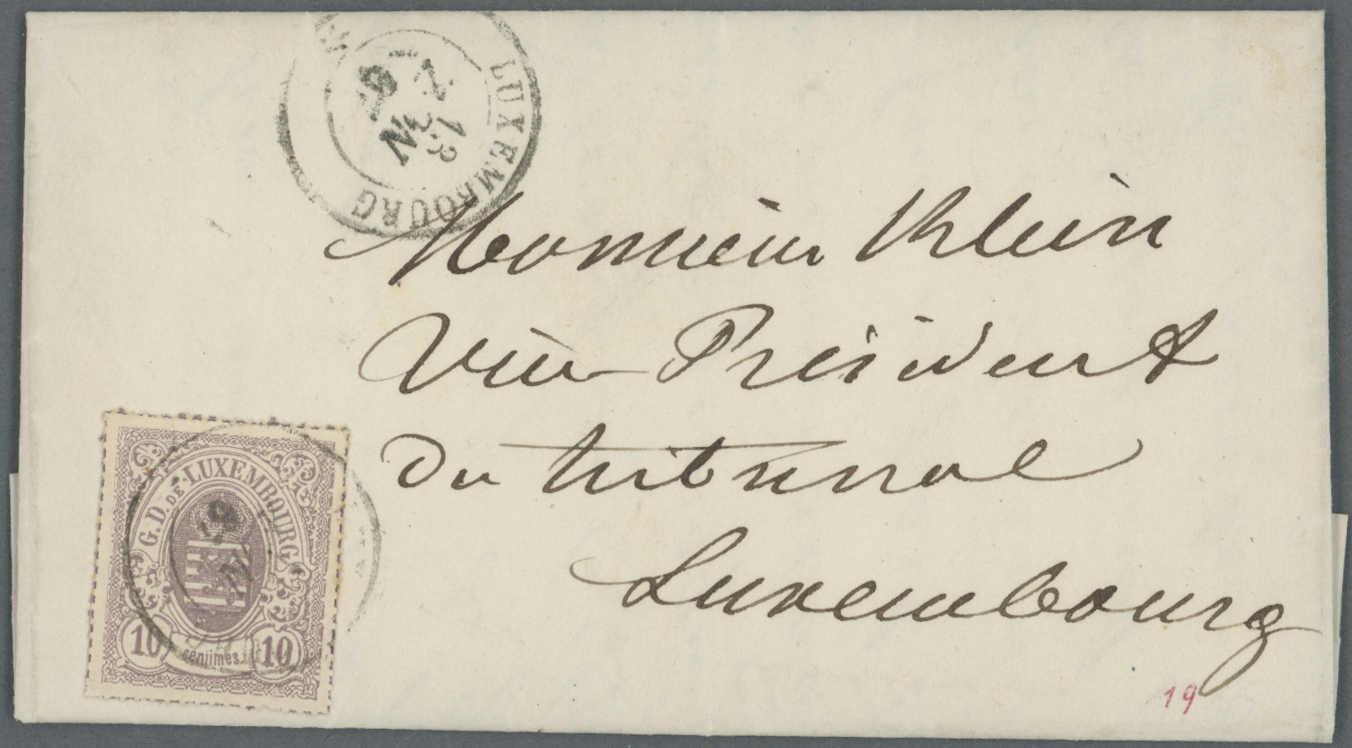 LUXEMBOURG
Monsieur Klein
Vice Président
du tribunal
Luxembourg
G. D. DE LUXEMBOURG
10 centimes. 10
19